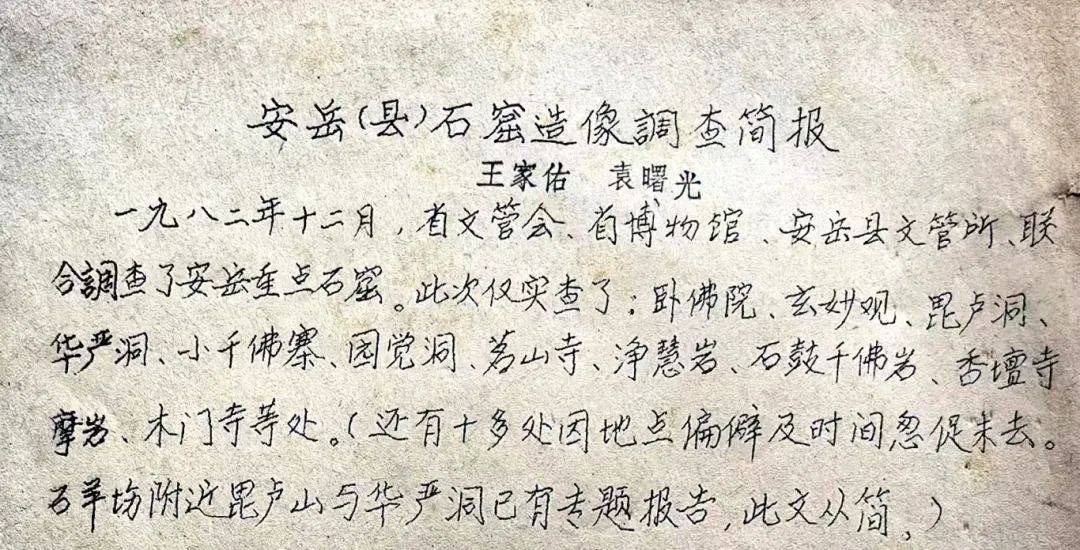 安岳(县)石窟造像調查简报
王家佑 袁曙光
一九八二年十二月，省文管会、省博物馆、安岳县文管所、联
合調查了安岳重点石窟。此次仅实查了：卧佛院、玄妙观、毘卢洞、
华严洞、小千佛寨、园觉洞、茗山寺、净慧岩、石鼓千佛岩、香壇寺
摩岩、木门寺等处。(还有十多处因地点偏僻及时间忽促未去。
石羊场附近毘卢山与华严洞已有专题报告，此文从简，)